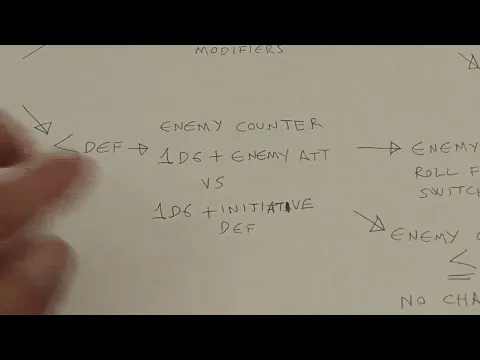 MODIFIERS
ENEMY COUNTER
< DEF → 1D6 + ENEMY ATT → ENEMY
VS
ROLL
SWITCH
1D6 + INITIATIVE
DEF
ENEMY
≤
NO CHA